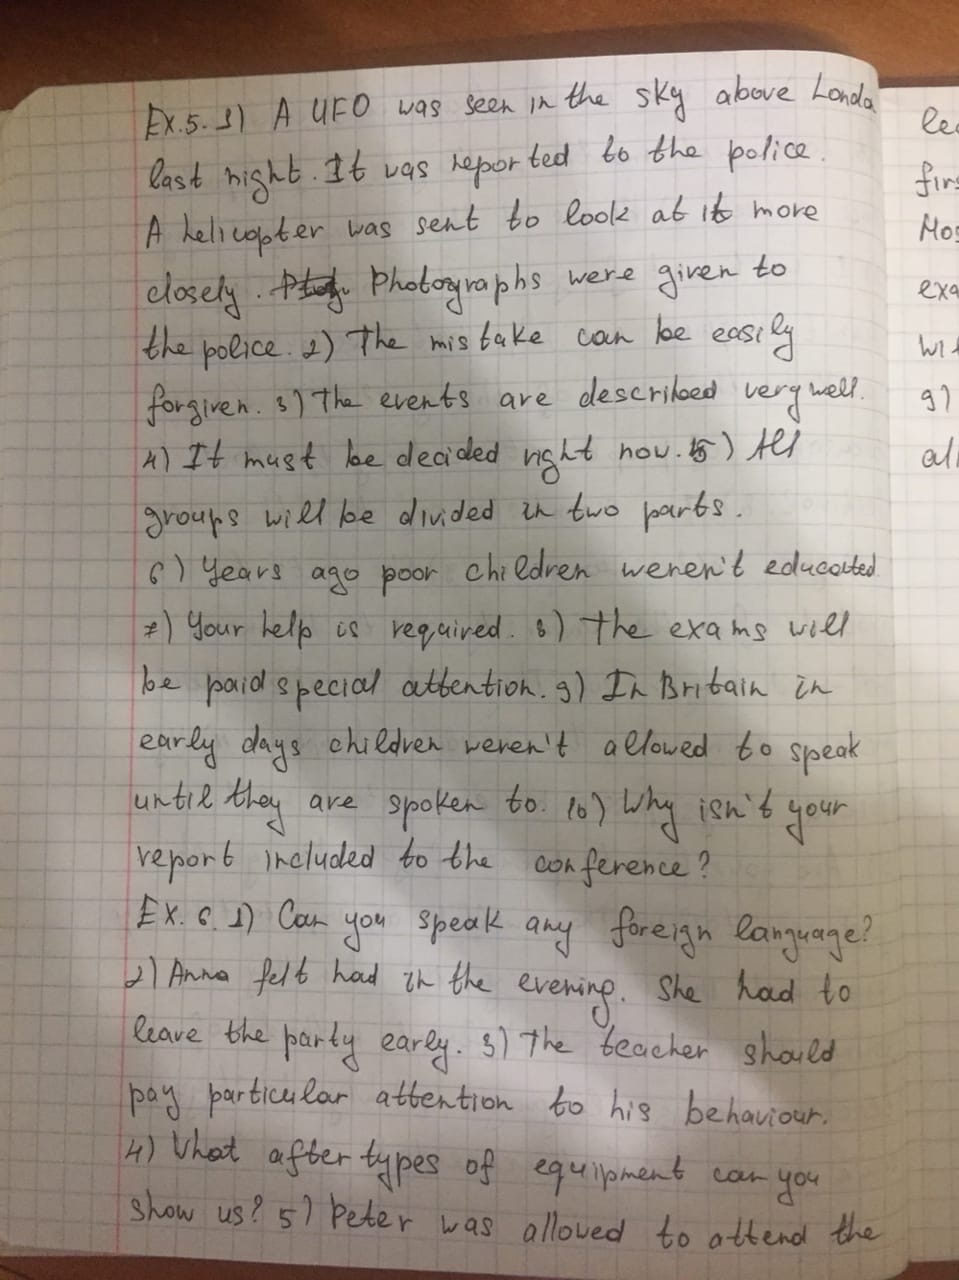 Ex.5. 1) A UFO was seen in the sky above Londo
last night. It was reported to the police.
A helicopter was sent to look at it more
closely. Photographs were given to
the police. 2) The mistake can be easily
forgiven. 3) The events are described very well.
4) It must be decided right now. 5) All
groups will be divided in two parts.
6) Years ago poor children weren't educated
7) Your help is required. 8) The exams will
be paid special attention. 9) In Britain in
early days children weren't allowed to speak
until they are spoken to. 10) Why isn't your
report included to the conference?
Ex. 6. 1) Can you speak any foreign language?
2) Anna felt bad in the evening. She had to
leave the party early. 3) The teacher should
pay particular attention to his behaviour.
4) What after types of equipment can you
show us? 5) Peter was allowed to attend the
lea
firs
Mos
exa
wit
9)
all